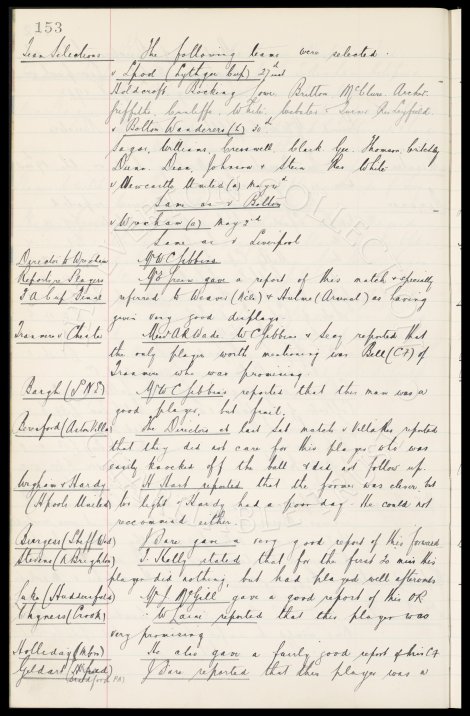 153
Team Selections The following teams were selected.
v L'pool (Lythgoe Cup) 27th inst
Holdcroft, Bocking Lowe, Britton McClure Archer
Griffiths, Cunliffe, White, Webster & Res Leyfield.
v Bolton Wanderers (h) 30th
Sagar, Williams, Cresswell, Clark Gee, Thomson, Critchley
Dunn, Dean, Johnson & Stein Res White
v Newcastle United (a) May 2nd
Same as v Bolton
v Wrexham (a) May 2nd
Same as v Liverpool
Director to Wrexham Mr W C Gibbins
Report re Players Mr Green gave a report of this match & specially
F A Cup Final referred to Weaver (N'cle) & Hulme (Arsenal) as having
given very good displays.
Tranmere v Chester Messrs A R Wade W C Gibbins & Seay reported that
the only player worth mentioning was Bell (C F) of
Tranmere who was promising.
Bargh (P N E) Mr W C Gibbins reported that this man was a
good player, but frail.
Beresford (Aston Villa) The Directors at last Sat match v Villa Res reported
that they did not care for this player who was
easily knocked off the ball & did not follow up.
Wigham & Hardy H Hart reported that the former was clever but
(H'pools United) too light & Hardy had a poor day. He could not
recommend either.
Burgess (Sheff Wed) J Dare gave a very good report of this forward
Stevens (N Brighton) T. Kelly stated that for the first 20 mins this
player did nothing, but had played well afterwards
(Huddersfield) Mr J McGill gave a good report of this OR
(Crook) W Laine reported that this player was
very promising
Holliday (M'bro) He also gave a fairly good report of this C F
Geldart (Bradford PA) J Dare reported that this player was a